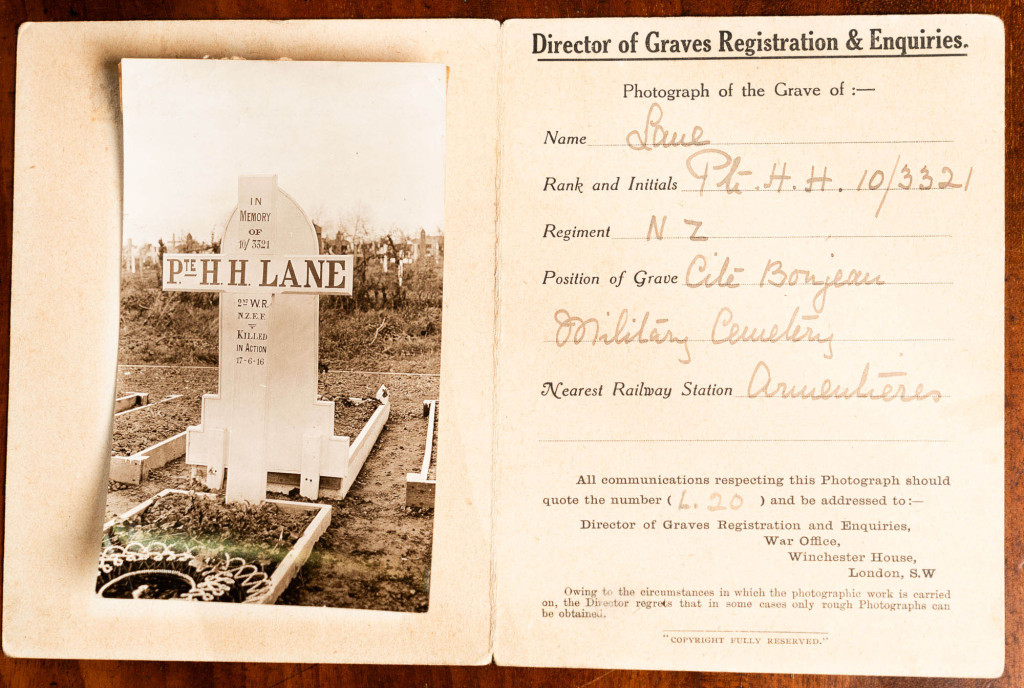 IN
MEMORY
OF
10/3321
PTE H.H. LANE
2ND W.R.
N.Z.E.F.
KILLED
IN ACTION
17-6-16
Director of Graves Registration & Enquiries.
Photograph of the Grave of :—
Name Lane
Rank and Initials Pte. H. H. 10/3321
Regiment N Z
Position of Grave Cité Bonjean
Military Cemetery
Nearest Railway Station Armentières
All communications respecting this Photograph should
quote the number ( L. 20 ) and be addressed to:—
Director of Graves Registration and Enquiries,
War Office,
Winchester House,
London, S.W
Owing to the circumstances in which the photographic work is carried
on, the Director regrets that in some cases only rough Photographs can
be obtained.
"COPYRIGHT FULLY RESERVED."